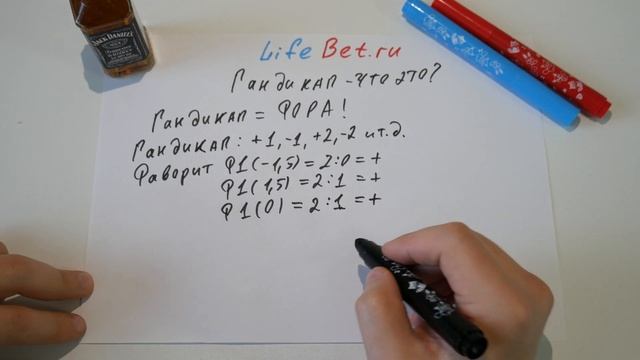 JACK DANIEL'S
Life Bet.ru
Гандикап - что это?
Гандикап = ФОРА!
Гандикап: +1, -1, +2, -2 и т.д.
Фаворит Ф1(-1,5) = 2:0 = +
Ф1(1,5) = 2:1 = +
Ф1(0) = 2:1 = +